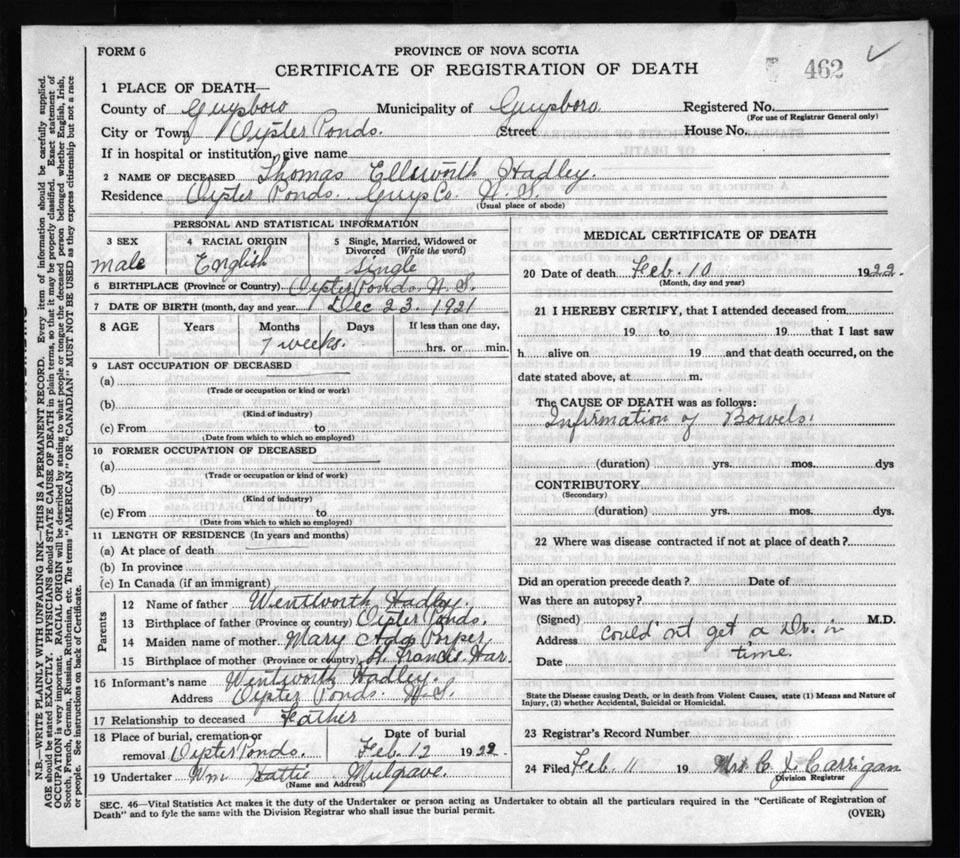 FORM 6
PROVINCE OF NOVA SCOTIA
CERTIFICATE OF REGISTRATION OF DEATH
462
1 PLACE OF DEATH—
County of Guysboro Municipality of Guysboro Registered No.
(For use of Registrar General only)
City or Town Oyster Ponds. (Street House No.
If in hospital or institution, give name
2 NAME OF DECEASED Thomas Ellsworth Hadley.
Residence Oyster Ponds. Guys Co. N.S.
(Usual place of abode)
PERSONAL AND STATISTICAL INFORMATION
3 SEX male
4 RACIAL ORIGIN English
5 Single, Married, Widowed or Divorced (Write the word) Single
6 BIRTHPLACE (Province or Country) Oyster Ponds, N.S.
7 DATE OF BIRTH (month, day and year) Dec 23. 1921
8 AGE Years Months Days If less than one day,
7 weeks. hrs. or min.
9 LAST OCCUPATION OF DECEASED
(a)
(Trade or occupation or kind of work)
(b)
(Kind of industry)
(c) From to
(Date from which to which so employed)
10 FORMER OCCUPATION OF DECEASED
(a)
(Trade or occupation or kind of work)
(b)
(Kind of industry)
(c) From to
(Date from which to which so employed)
11 LENGTH OF RESIDENCE (In years and months)
(a) At place of death
(b) In province
(c) In Canada (if an immigrant)
Parents
12 Name of father Wentworth Hadley.
13 Birthplace of father (Province or country) Oister Ponds.
14 Maiden name of mother. Mary
15 Birthplace of mother (Province or country) Francis Har.
16 Informant's name Wentworth Hadley.
Address Oyster Ponds. N.S.
17 Relationship to deceased Father
18 Place of burial, cremation or Date of burial
removal Oyster Ponds. Feb. 12 1922
19 Undertaker Wm Hattie Mulgrave.
(Name and Address)
MEDICAL CERTIFICATE OF DEATH
20 Date of death Feb. 10 1922.
(Month, day and year)
21 I HEREBY CERTIFY, that I attended deceased from
19 to 19 that I last saw
h alive on 19 and that death occurred, on the
date stated above, at m.
The CAUSE OF DEATH was as follows:
Infirmation of Bowels.
(duration) yrs. mos. dys
CONTRIBUTORY
(Secondary)
(duration) yrs. mos. dys.
22 Where was disease contracted if not at place of death?
Did an operation precede death? Date of
Was there an autopsy?
(Signed) M.D.
Address could not get a Dr. in
Date time.
State the Disease causing Death, or in death from Violent Causes, state (1) Means and Nature of
Injury, (2) whether Accidental, Suicidal or Homicidal.
23 Registrar's Record Number
24 Filed Feb. 11 19 Mrs C. J. Carrigan
Division Registrar
SEC. 46—Vital Statistics Act makes it the duty of the Undertaker or person acting as Undertaker to obtain all the particulars required in the "Certificate of Registration of
Death" and to fyle the same with the Division Registrar who shall issue the burial permit. (OVER)
N.B.—WRITE PLAINLY WITH UNFADING INK—THIS IS A PERMANENT RECORD. Every item of information should be carefully supplied.
AGE should be stated EXACTLY. PHYSICIANS should STATE CAUSE OF DEATH in plain terms, so that it may be properly classified. Exact statement of
OCCUPATION is very important. RACIAL ORIGIN will be described by stating to what people or tongue the deceased person belonged whether English, Irish,
Scotch, French, German, Russian, Ruthenian, etc. The terms "AMERICAN" OR "CANADIAN" MUST NOT BE USED as they express citizenship but not a race
or people. See instructions on back of Certificate.